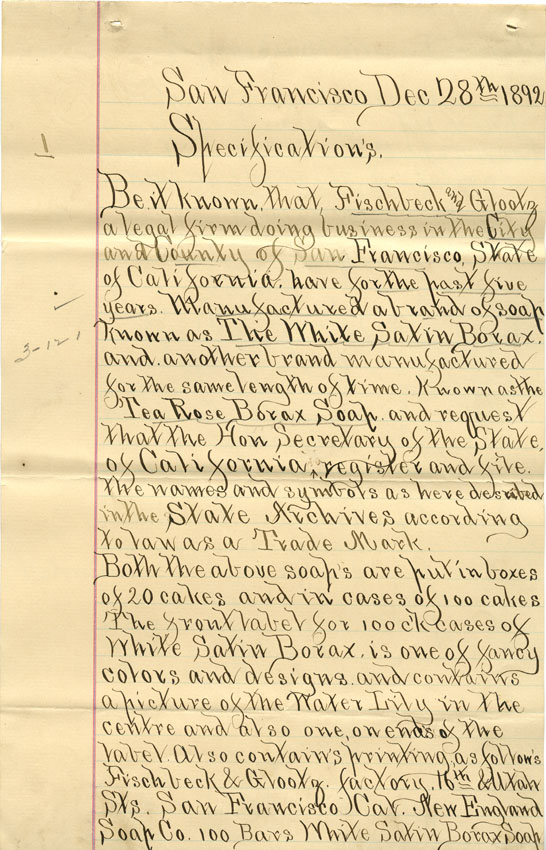 San Francisco Dec 28th 1892
1
Specification's.
Be it known, that, Fischbeck and Glootz
a legal firm doing business in the City
and County of San Francisco, State
of California. have for the past five
years. Manufactured a brand of soap
known as The White Satin Borax.
3-121
and another brand manufactured
for the same length of time. Known as the
Tea Rose Borax Soap. and request
that the Hon Secretary of the State,
of California, register and file.
the names and symbols as here described
in the State Archives according
to law as a Trade Mark.
Both the above soap's are put in boxes
of 20 cakes and in cases of 100 cakes
The front label for 100 ck cases of
White Satin Borax. is one of fancy
colors and designs. and contains
a picture of the Water Lily in the
centre and also one, on ends of the
label. Also contain's printing, as follow's
Fischbeck & Glootz. factory. 16th & Utah
Sts. San Francisco Cal. New England
Soap Co. 100 Bars White Satin Borax Soap